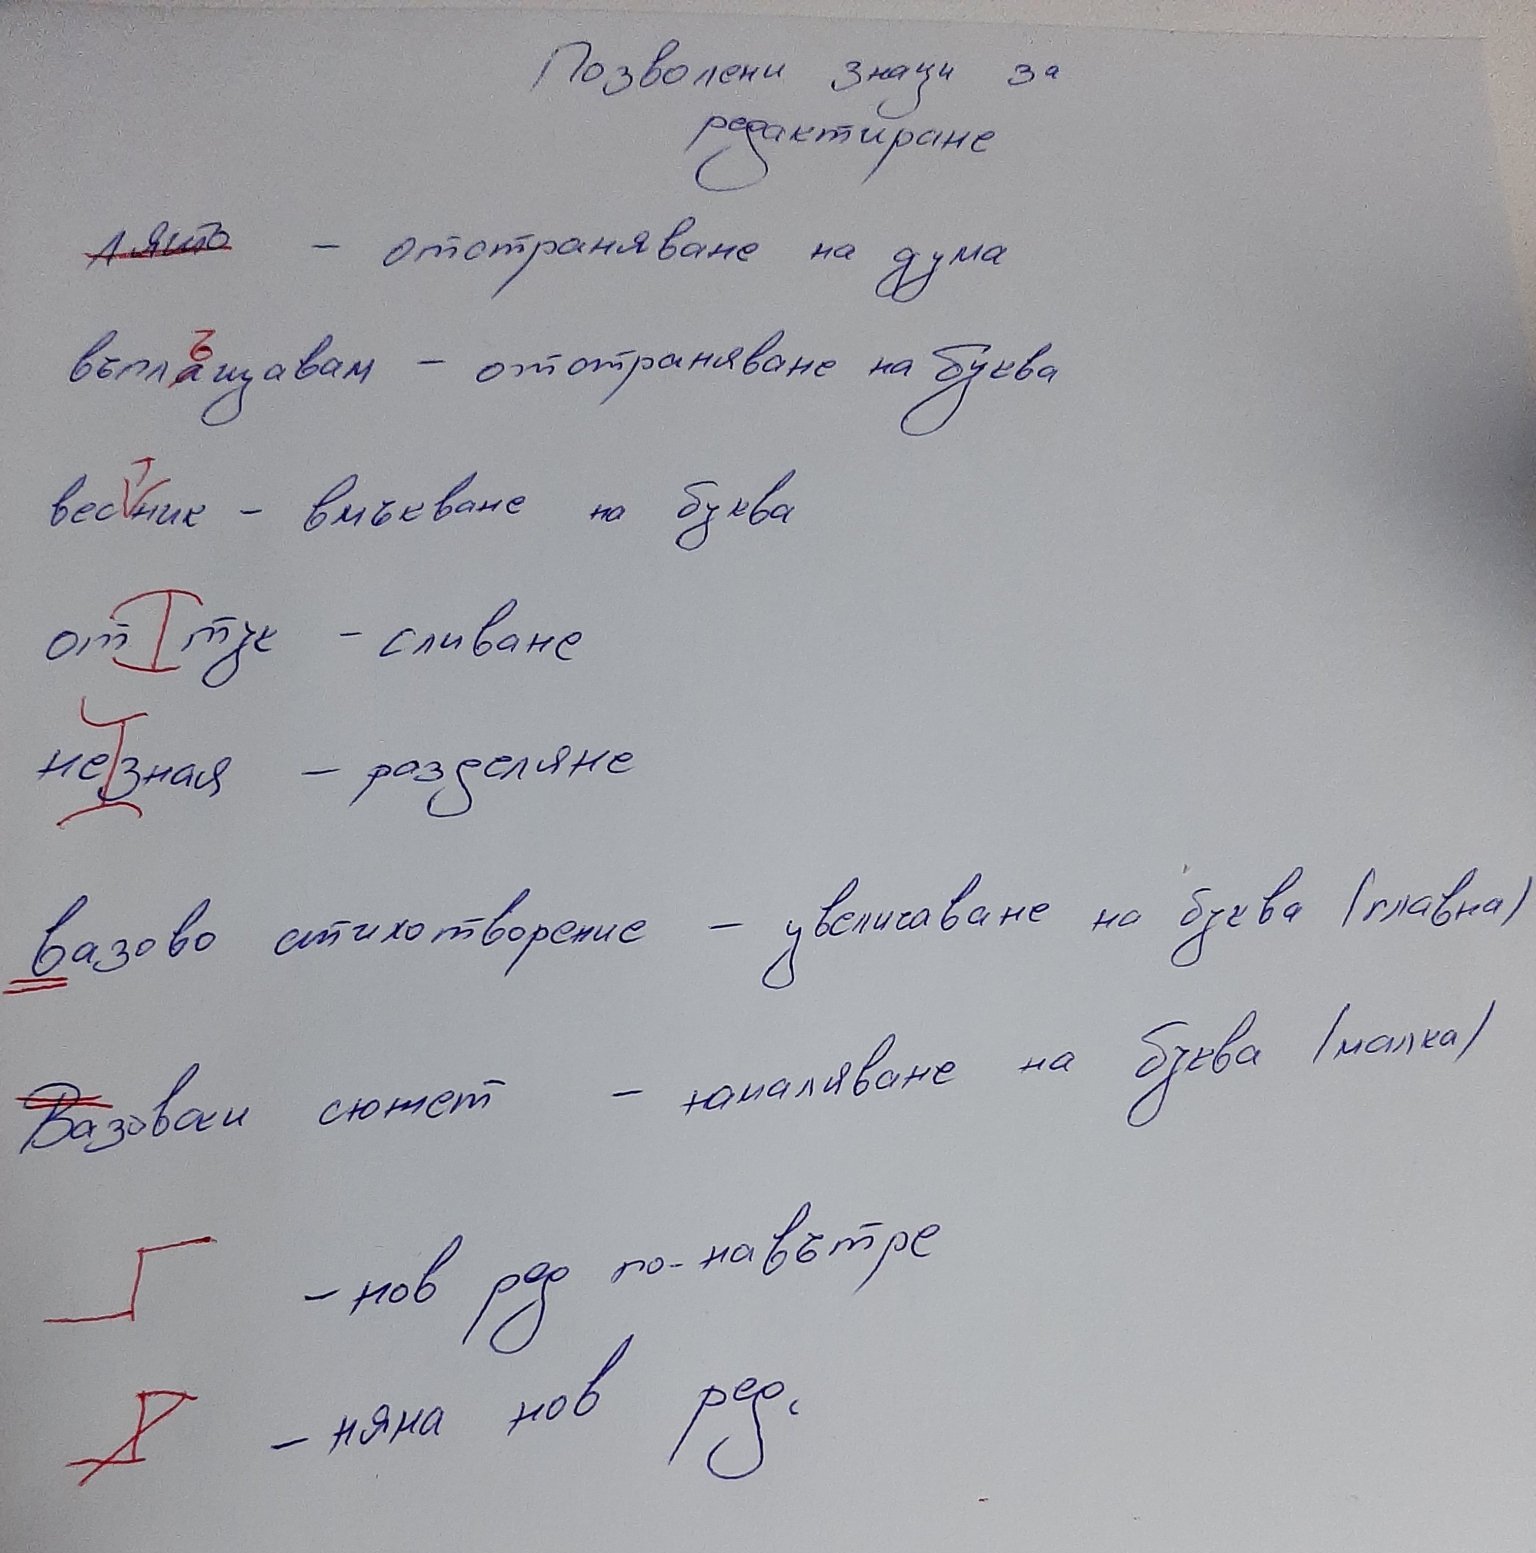 Позволени знаци за
редактиране
лято – отстраняване на дума
въплащавам – отстраняване на буква
ъ
весник – вмъкване на буква
т
от тук – сливане
незная – разделяне
вазово стихотворение – увеличаване на буква /главна/
Вазовски сюжет – намаляване на буква /малка/
– нов ред по-навътре
– няма нов ред.